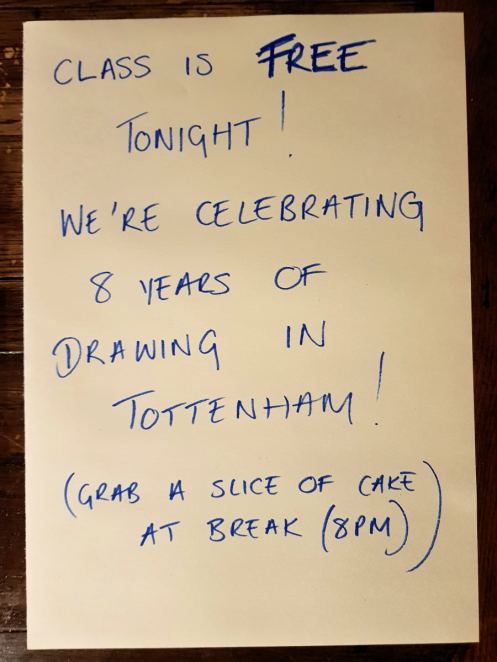 CLASS IS FREE
TONIGHT!
WE'RE CELEBRATING
8 YEARS OF
DRAWING IN
TOTTENHAM!
(GRAB A SLICE OF CAKE
AT BREAK (8PM))